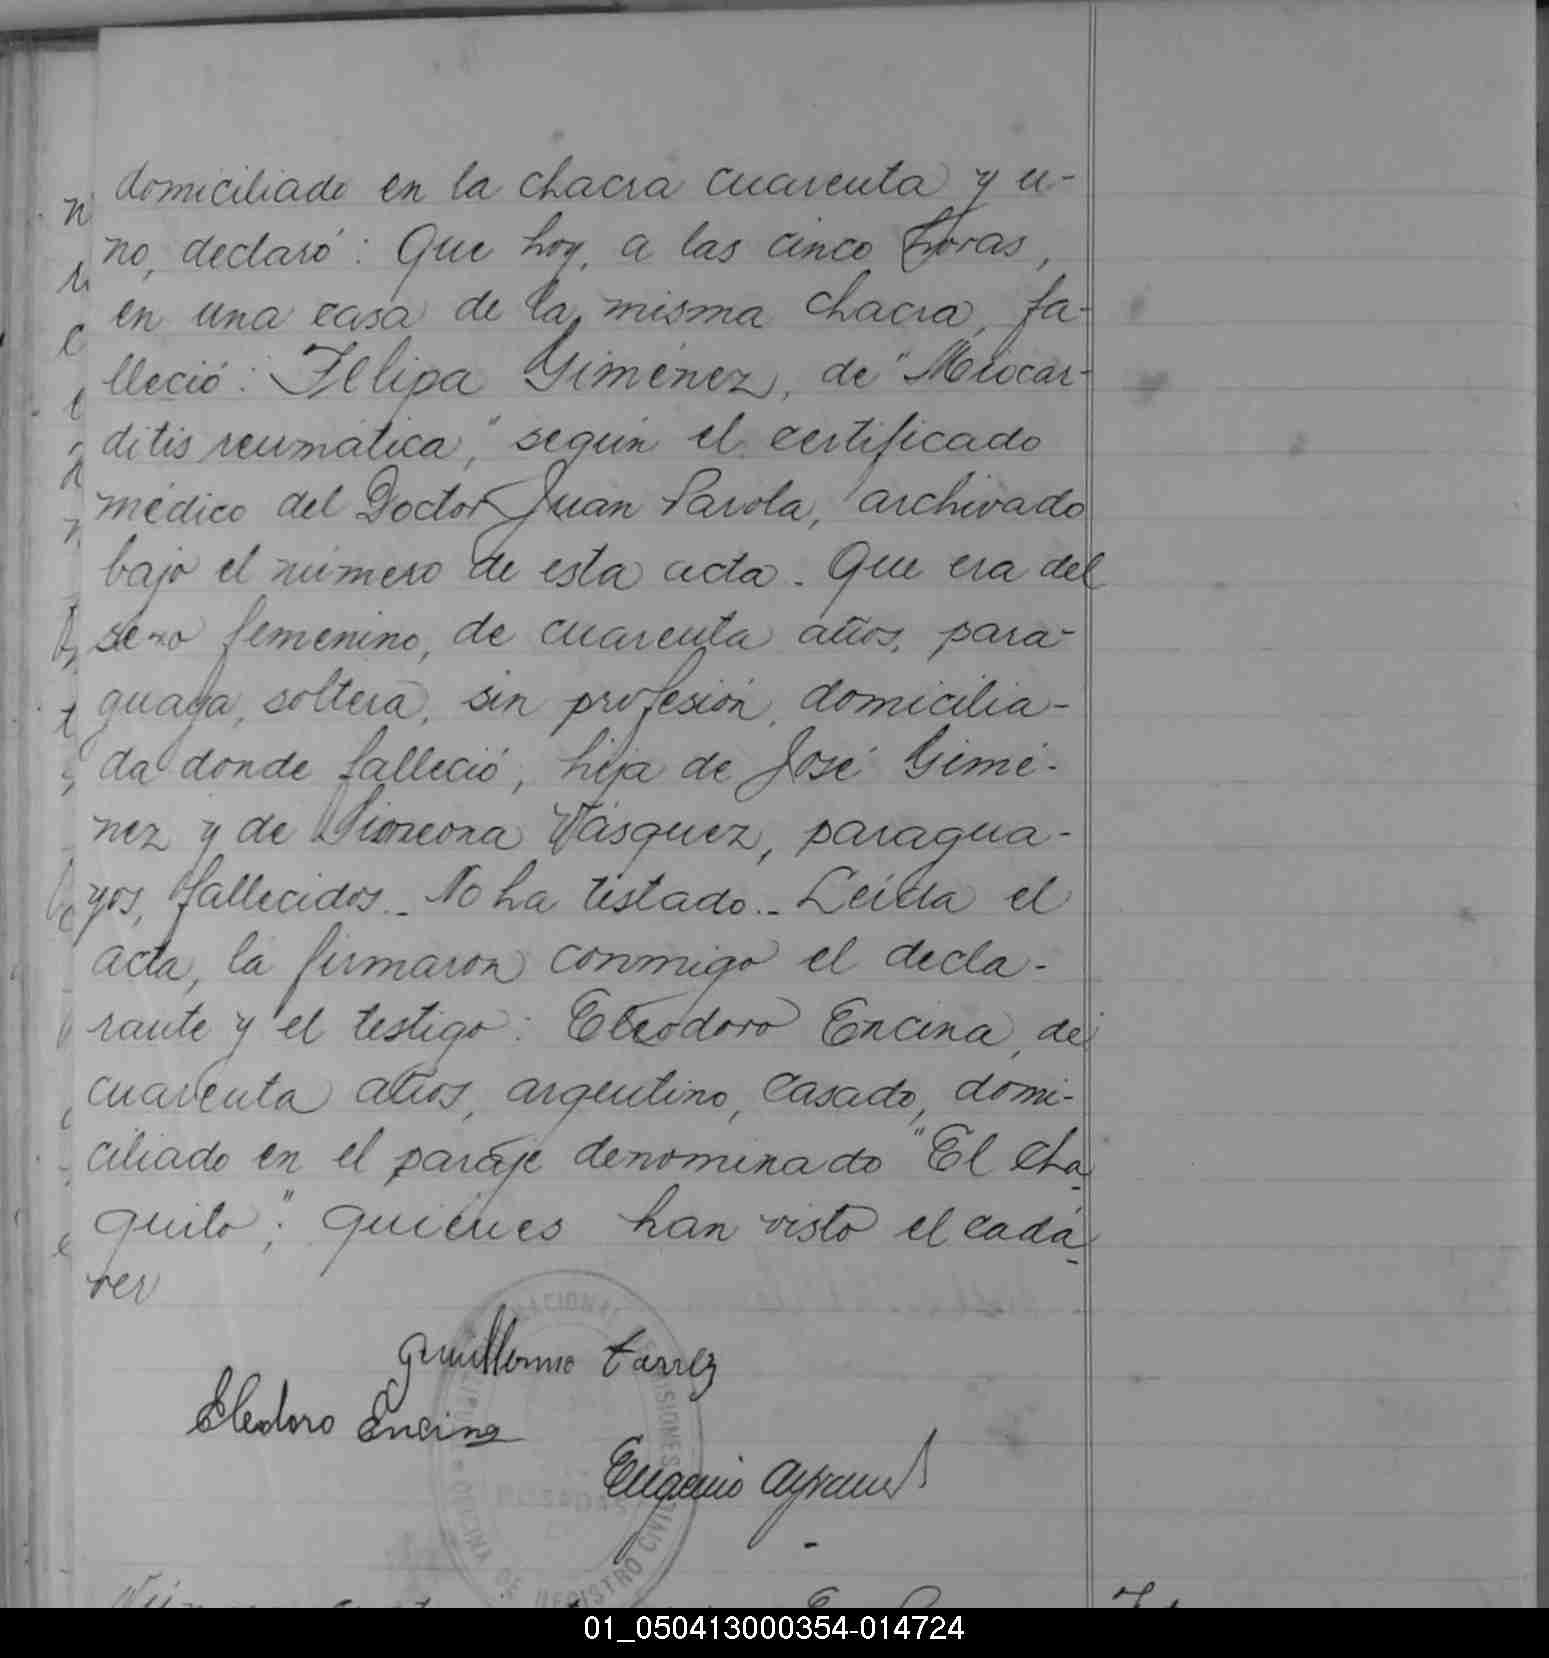 domiciliado en la chacra cuarenta y u-
no, declaró: Que hoy, a las cinco horas,
en una casa de la misma chacra, fa-
lleció: Felipa Giménez, de "Miocar-
ditis reumática," según el certificado
médico del Doctor Juan Parola, archivado
bajo el número de esta acta. Que era del
sexo femenino, de cuarenta años, para-
guaya, soltera, sin profesión, domicilia-
da donde falleció, hija de José Gimé-
nez y de Simeona Vásquez, paragua-
yos, fallecidos.- No ha testado.- Leída el
acta, la firmaron conmigo el decla-
rante y el testigo: Eleodoro Encina, de
cuarenta años, argentino, casado, domi-
ciliado en el paraje denominado "El Cha-
quito"; quienes han visto el cadá-
ver
Guillermo
Eleodoro Encina
Eugenio
NACIONAL
OFICINA DE REGISTRO CIVIL
POSADAS
01_050413000354-014724